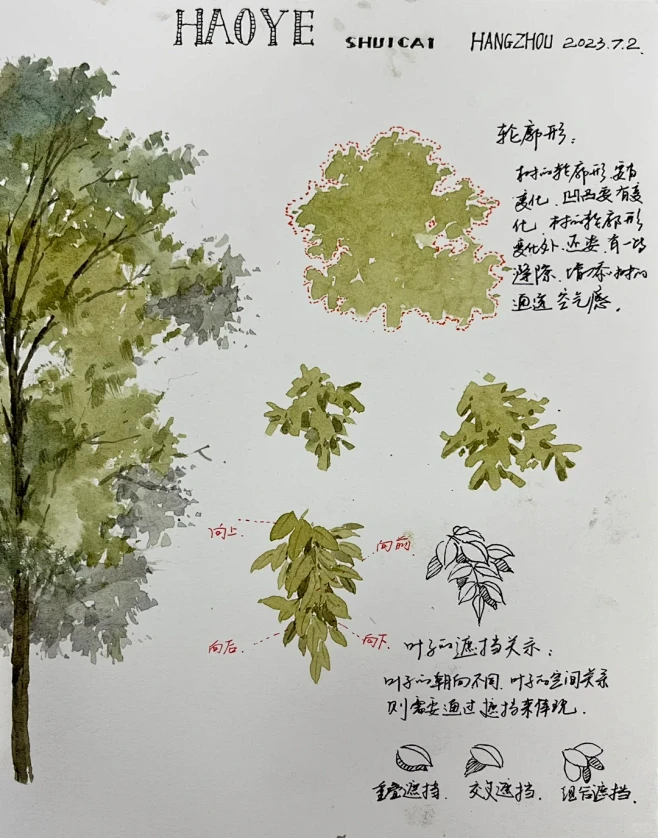 HAOYE SHUICAI HANGZHOU 2023.7.2.
轮廓形:
树的轮廓形要有
变化,凹凸要有变
化,树的轮廓形
变化外,还要有一些
缝隙,增添树的
通透空气感。
向上.
向前.
向后.
向下.
叶子的遮挡关系:
叶子的朝向不同,叶子的空间关系
则需要通过遮挡来体现.
重叠遮挡. 交叉遮挡. 组合遮挡.